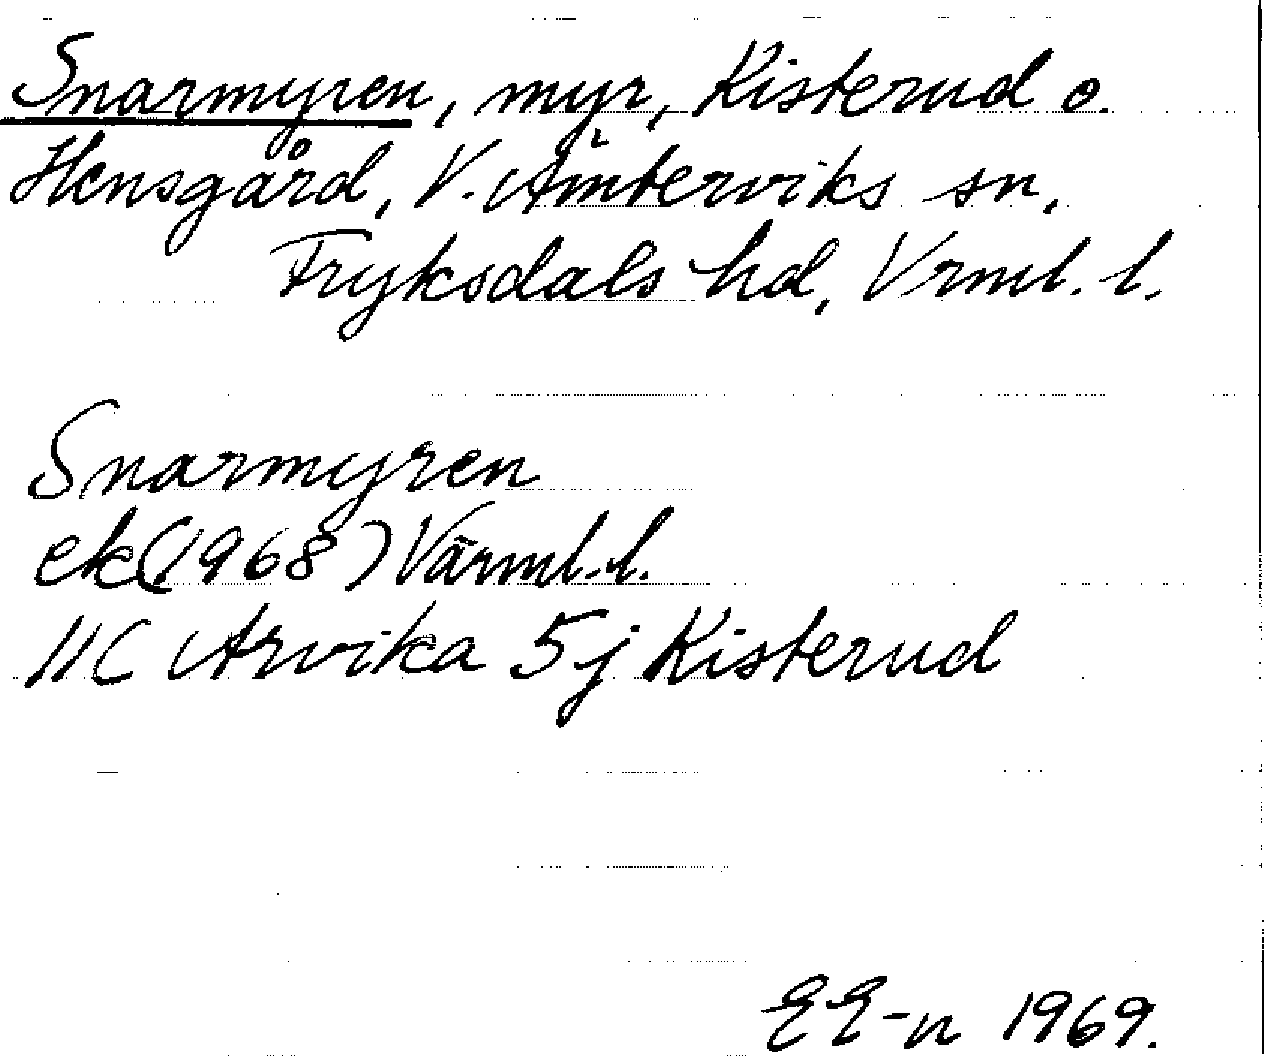 Snarmyren, myr, Kisterud o.
Hensgård, V. Ämterviks sn,
Fryksdals hd, Vrml. l.
Snarmyren
ek(1968) Värml. l.
11C Arvika 5j Kisterud
EE-n 1969.